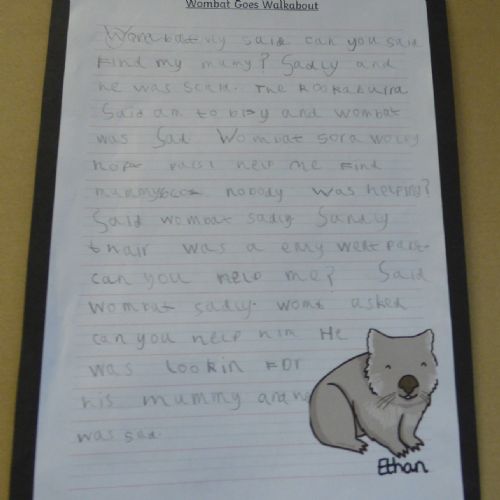 Wombat Goes Walkabout
Wombat said can you said
Find my mumy? Sadly and
he was scard. The Kookaburra
Said am to bisy and wombat
was Sad. Wombat
help me Find
nobody was helping?
Said wombat sadly. Sandly
thair was a emy went past.
can you help me? Said
wombat sadly. womt asked
can you help him He
was lookin For
his mummy and he
was sad.
Ethan